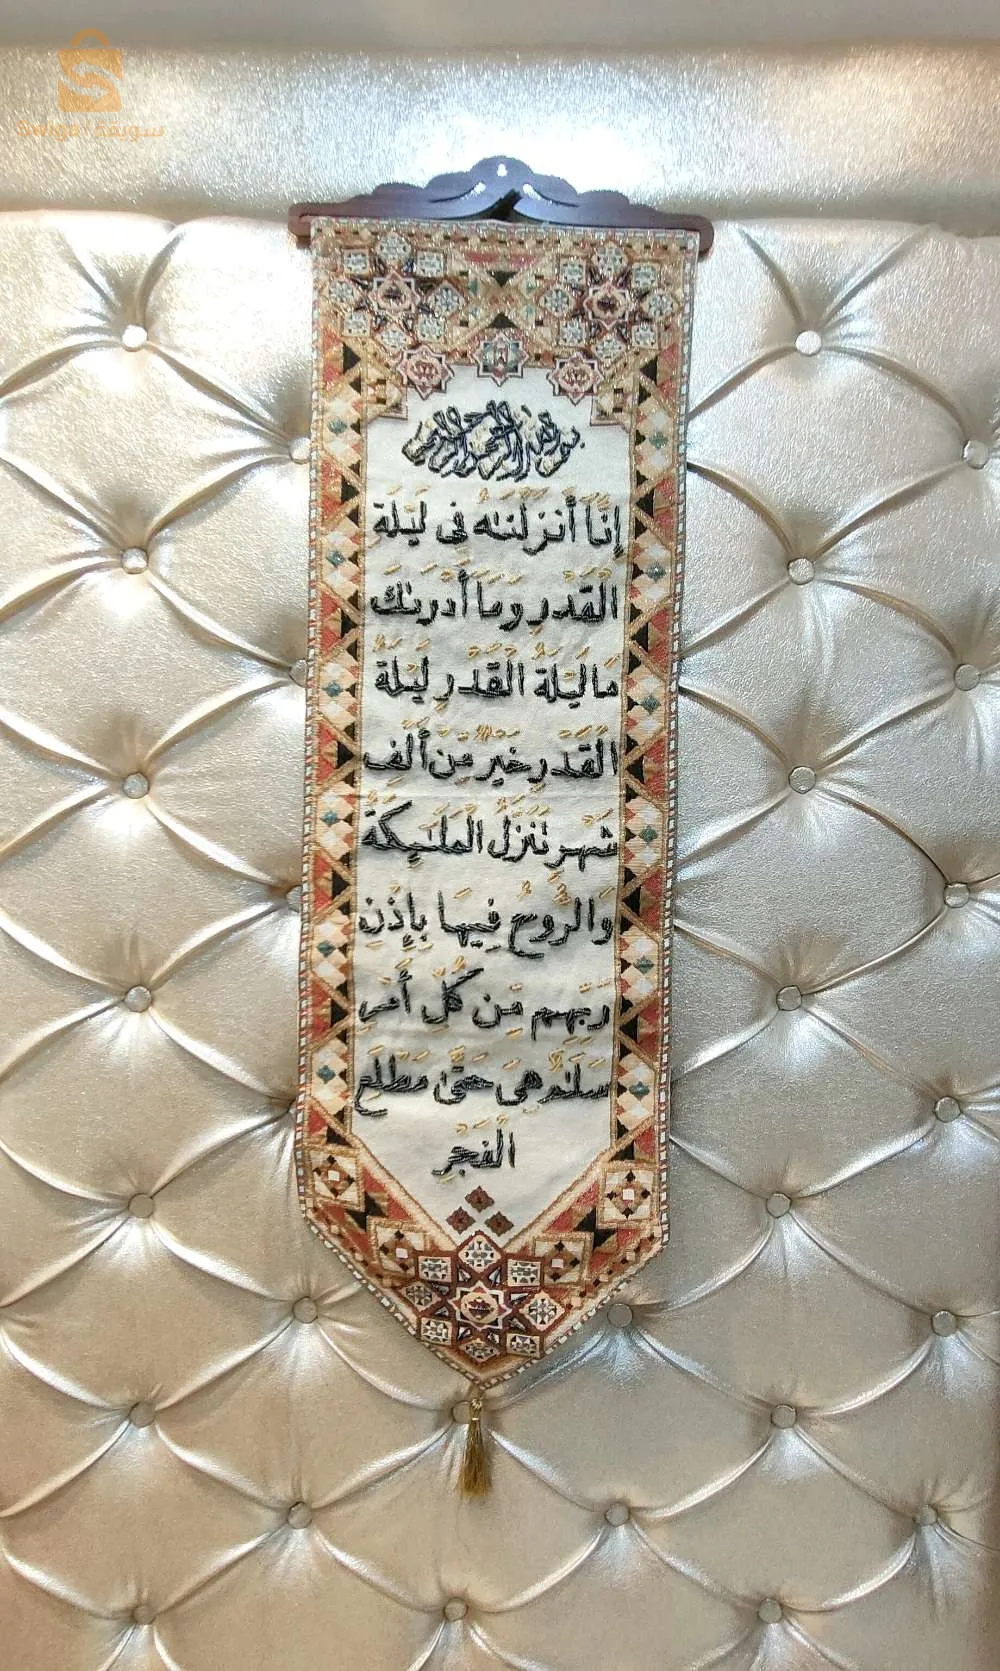 Swiga سويقة
بسم الله الرحمن الرحيم
إِنَّا أَنزَلْنَٰهُ فِى لَيْلَةِ
الْقَدْرِ وَمَا أَدْرَىٰكَ
مَا لَيْلَةُ الْقَدْرِ لَيْلَةُ
الْقَدْرِ خَيْرٌ مِّنْ أَلْفِ
شَهْرٍ تَنَزَّلُ الْمَلَٰٓئِكَةُ
وَالرُّوحُ فِيهَا بِإِذْنِ
رَبِّهِم مِّن كُلِّ أَمْرٍ
سَلَٰمٌ هِىَ حَتَّىٰ مَطْلَعِ
الْفَجْرِ